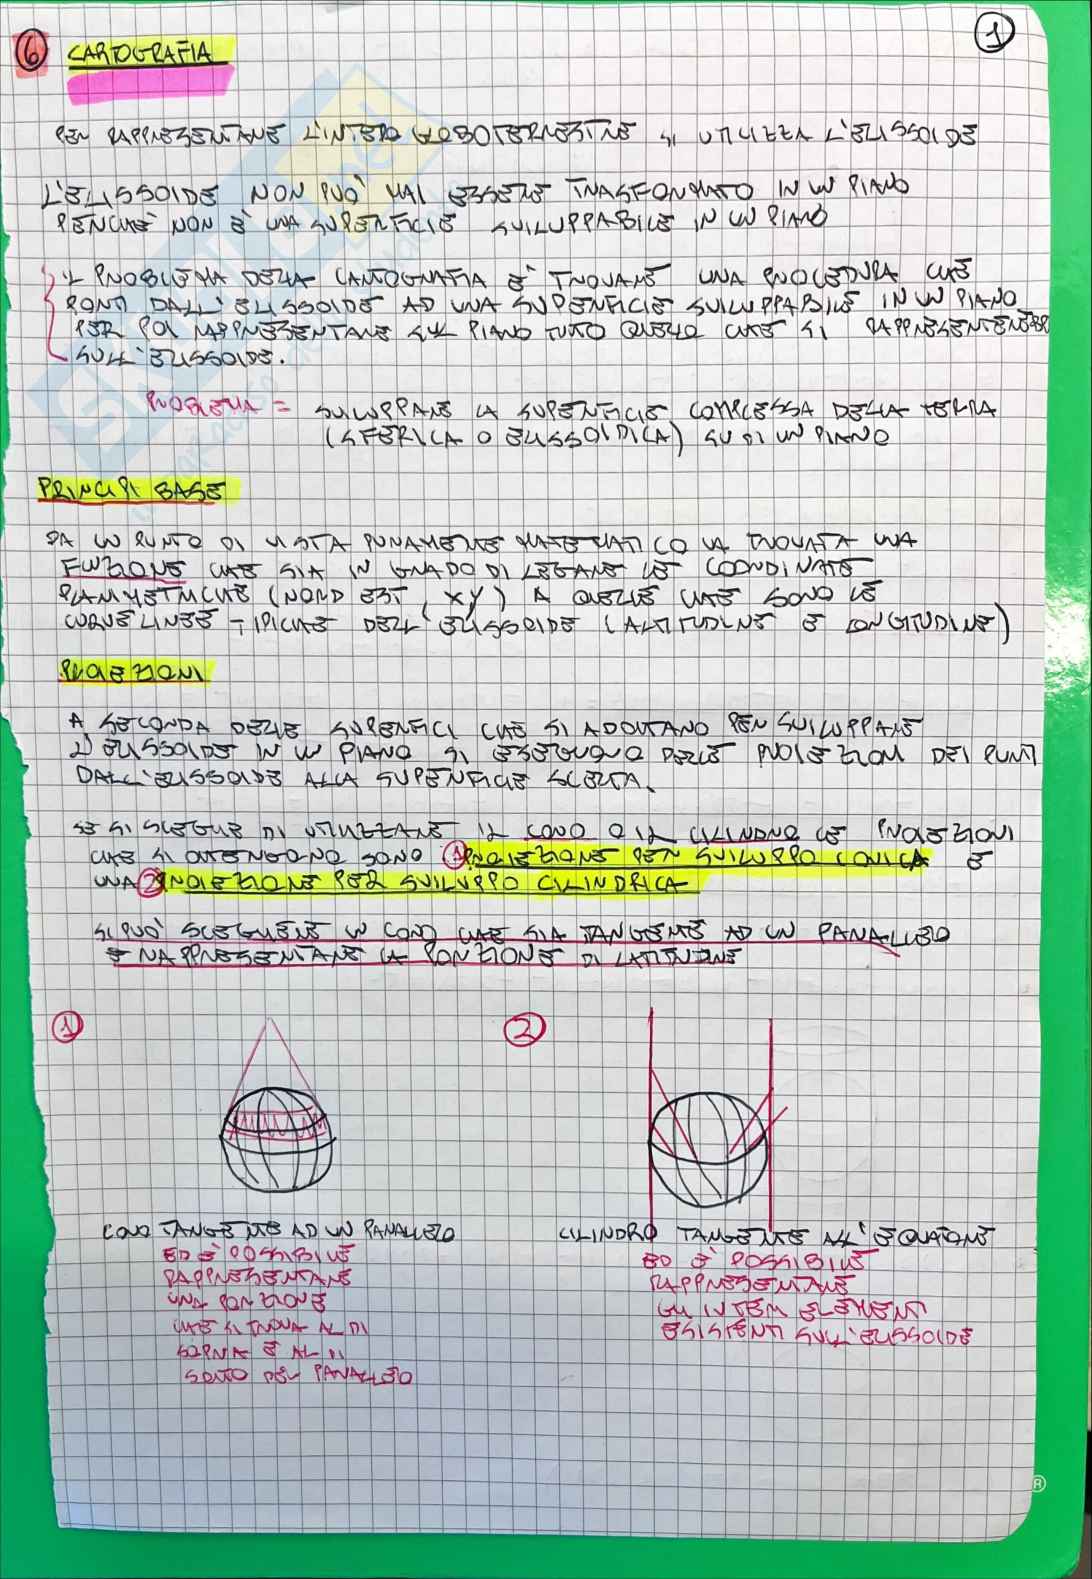 6 CARTOGRAFIA
1
PER RAPPRESENTARE L'INTERO GLOBO TERRESTRE SI UTILIZZA L'ELISSOIDE
L'ELISSOIDE NON PUÒ MAI ESSERE TRASFORMATO IN UN PIANO
PERCHÈ NON È UNA SUPERFICIE SVILUPPABILE IN UN PIANO
IL PROBLEMA DELLA CARTOGRAFIA È TROVARE UNA PROCEDURA CHE
PORTI DALL'ELISSOIDE AD UNA SUPERFICIE SVILUPPABILE IN UN PIANO
PER POI RAPPRESENTARE SUL PIANO TUTTO QUELLO CHE SI
SULL'ELISSOIDE.
PROBLEMA = SVILUPPARE LA SUPERFICIE COMPLESSA DELLA TERRA
(SFERICA O ELISSOIDICA) SU DI UN PIANO
PRINCIPI BASE
DA UN PUNTO DI VISTA PURAMENTE MATEMATICO VA TROVATA UNA
FUNZIONE CHE SIA IN GRADO DI LEGARE LE COORDINATE
PLANIMETRICHE (NORD EST, XY) A QUELLE CHE SONO LE
CURVE LINEE TIPICHE DELL'ELISSOIDE (ALTITUDINE E LONGITUDINE)
PROIEZIONI
A SECONDA DELLE SUPERFICI CHE SI ADOTTANO PER SVILUPPARE
L'ELISSOIDE IN UN PIANO SI ESEGUONO DELLE PROIEZIONI DEI PUNTI
DALL'ELISSOIDE ALLA SUPERFICIE SCELTA.
SE SI SCEGLIE DI UTILIZZARE IL CONO O IL CILINDRO LE PROIEZIONI
CHE SI OTTENGONO SONO 1 PROIEZIONE PER SVILUPPO CONICA E
UNA 2 PROIEZIONE PER SVILUPPO CILINDRICA
SI PUÒ SCEGLIERE UN CONO CHE SIA TANGENTE AD UN PARALLELO
E RAPPRESENTARE LA PORZIONE DI LATITUDINE
1
2
CONO TANGENTE AD UN PARALLELO
ED È POSSIBILE
RAPPRESENTARE
UNA PORZIONE
CHE SI TROVA AL DI
SOPRA E AL DI
SOTTO DEL PARALLELO
CILINDRO TANGENTE ALL'EQUATORE
ED È POSSIBILE
RAPPRESENTARE
GLI INTERI ELEMENTI
ESISTENTI SULL'ELISSOIDE